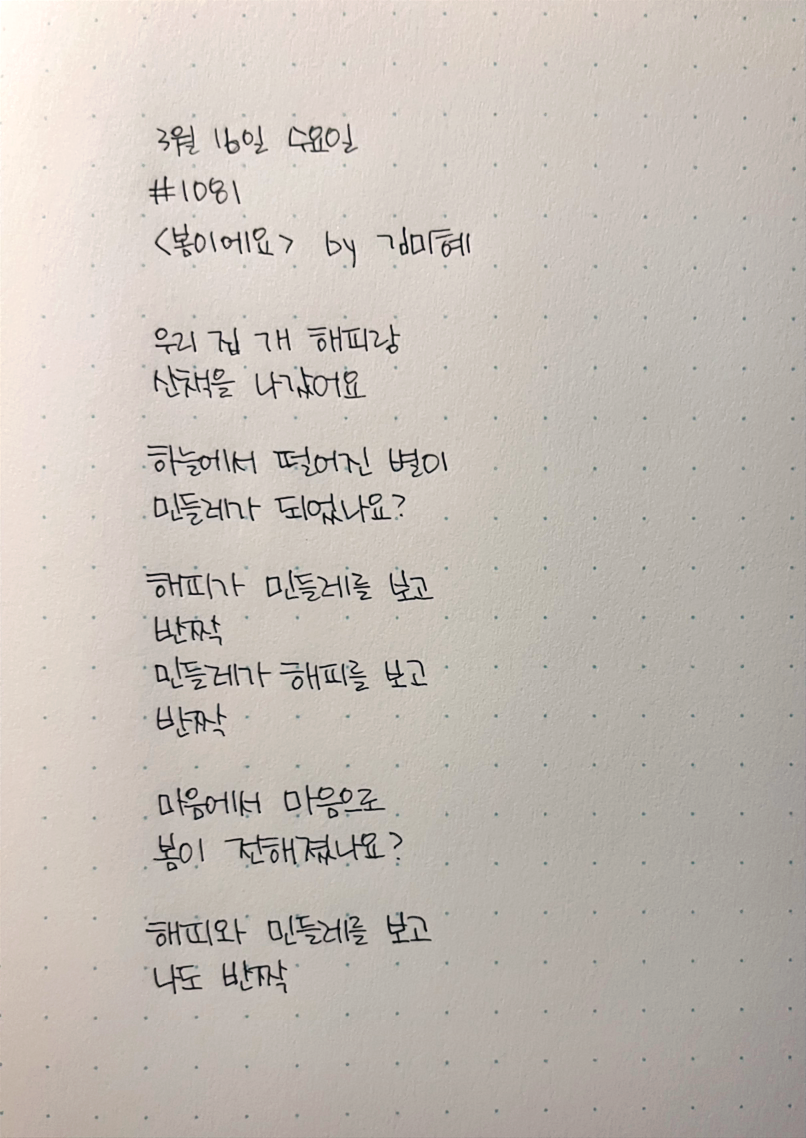 3월 16일 수요일
#1081
<봄이에요> by 김미혜
우리 집 개 해피랑
산책을 나갔어요
하늘에서 떨어진 별이
민들레가 되었나요?
해피가 민들레를 보고
반짝
민들레가 해피를 보고
반짝
마음에서 마음으로
봄이 전해졌나요?
해피와 민들레를 보고
나도 반짝